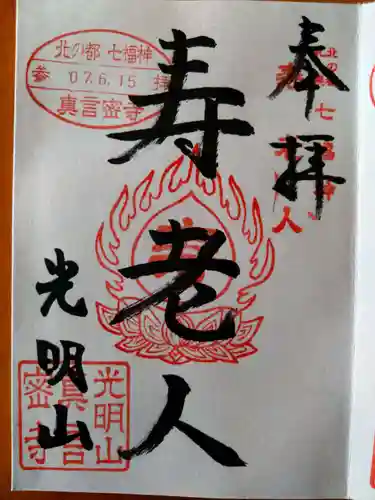 奉拝
北の
七
人
寿老人
北の都 七福神
参 07.6.15 拝
真言密寺
光明山
光明山
真言
密寺